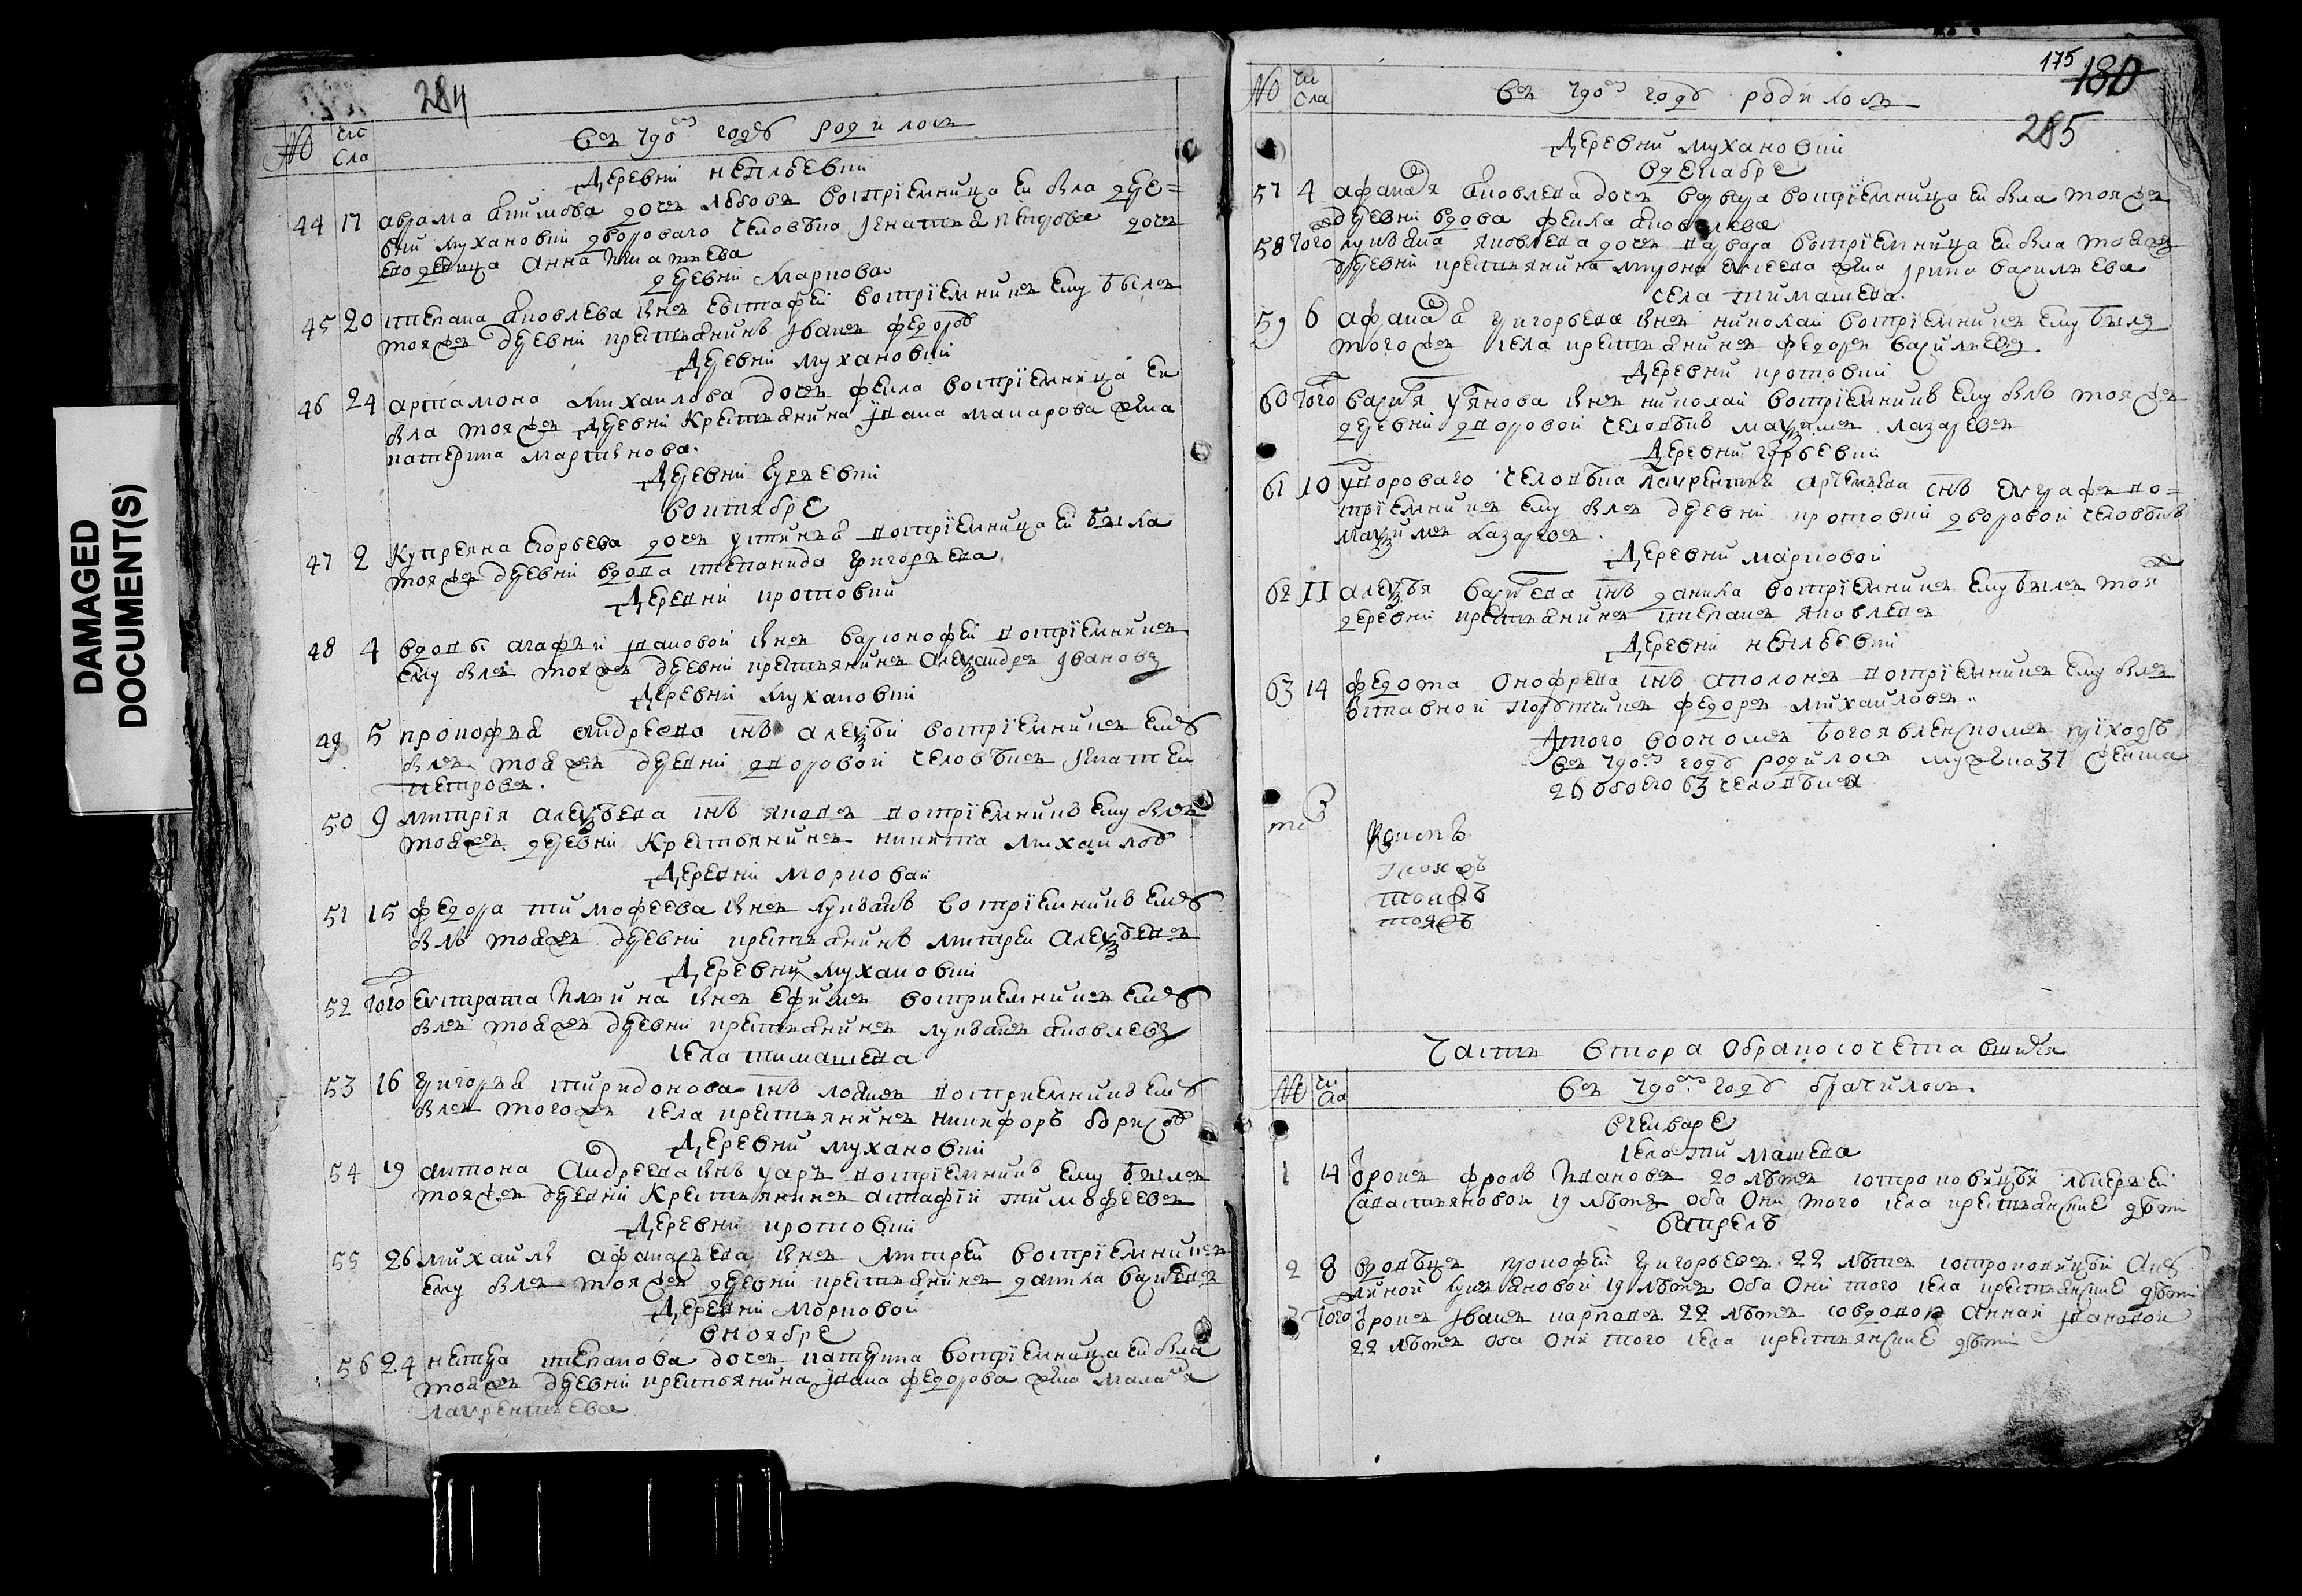 DAMAGED
DOCUMENT(S)
284
№ чис
сла
въ 790м годѣ родилось
Деревни Неплѣевки
44 17 аврама акимова дочь любовь воспрїемница ей бла дере=
вни мухановки двороваго человѣка игнатья петрова дочь
анна игнатьева
деревни Маркова
45 20 степана яковлева снъ евстафей воспрїемникъ ему былъ
тояжъ древни крестьянинъ иванъ федоровъ
Деревни мухановки
46 24 артамона михаилова дочь фекла воспрїемница ей
бла тояжъ древни крестьянина ивана макарова жена
катерина мартынова.
Деревни Юрьевки
в октябре
47 2 купреяна егорьева дочь устинья воспрїемница ей была
тояжъ древни вдова степанида григорьева
Деревни протовки
48 4 вдовы агафьи ивановой снъ варлонофей воспрїемникъ
ему блъ тояжъ древни крестьянинъ александръ ивановъ
Деревни мухановки
49 5 прокофья андреева снъ алексѣй воспрїемникъ емѹ
блъ тояжъ древни дворовой человѣкъ игнатей
петровъ.
50 9 митрїя алексѣева снъ яковъ воспрїемникъ ему блъ
тояжъ древни крестьянинъ никита михаиловъ
Деревни марковой
51 15 федора тимофеева снъ лукьянъ воспрїемникъ емѹ
блъ тояжъ древни крестьянинъ митрей алексѣевъ
Деревни мухановки
52 того евстрата ильина снъ ефимъ восприемникъ емѹ
блъ тояжъ древни крестьянинъ лукьянъ яковлевъ
села тимашева
53 16 григорья спиридонова снъ восприемникъ емѹ
блъ тогожъ села крестьянинъ никифоръ борисовъ
Деревни мухановки
54 19 антона андреева снъ уаръ воспрїемникъ ему былъ
тояжъ древни крестьянинъ астафїй тимофеевъ
Деревни протовки
55 26 михаилы афанасьева снъ митрей воспрїемникъ
ему блъ тояжъ древни крестьянинъ данила васильевъ
Деревни Марковой
в ноябре
56 24 нестера степанова дочь катерина воспрїемница ей бла
тояжъ древни крестьянина ивана федорова жена маланья
лаврентьева
175
180
285
№ чи
сла
въ 790м годѣ родилось
Деревни мухановки
в декабре
57 4 афанасья яковлева дочь варвара воспрїемница ей бла тояжъ
древни вдова фекла яковлева
58 того лукьяна яковлева дочь варвара воспрїемница ей бла тояжъ
древни крестьянина мирона алексеева жена ирина васильева
села тимашева.
59 6 афанасья григорьева снъ николай воспрїемникъ ему былъ
тогожъ села крестьянинъ федоръ васильевъ.
Деревни протовки
60 того василья снъ николай воспрїемникъ ему блъ тояжъ
древни дворовой человѣкъ максимъ лазаревъ
Деревни юрьевки
61 10 двороваго человѣка лаврентья артемьева снъ евграфъ во=
спрїемникъ ему блъ древни протовки дворовой человѣкъ
максимъ лазаревъ.
Деревни марковой
62 11 алексѣя васильева снъ данила воспрїемникъ ему былъ тояжъ
деревни крестьянинъ степанъ яковлевъ
Деревни неплѣевки
63 14 федота онофрева снъ аполонъ воспрїемникъ ему блъ
отставной порутчикъ федоръ михаиловъ.
Итого во ономъ богоявленскомъ приходѣ
въ 790м годѣ родилось мужеска 37 женска
26 обоего 63 человѣка
Часть втора о бракосочетавшихся
№ чи
сла
въ 790м годѣ брачилось.
в генваре
села тимашева
1 14 отрокъ фролъ ивановъ 20 лѣтъ сотроковицѣй лукерьей
савастьяновой 19 лѣтъ оба они того села крестьянские дѣти
в апрелѣ
2 8 вдовецъ прокофей григорьевъ 22 лѣтъ сотроковицѣй аку
линой лукьяновой 19 лѣтъ оба они того села крестьянские дѣти
3 того отрокъ иванъ карповъ 22 лѣтъ совдовой анной ивановой
22 лѣтъ оба они того села крестьянские дѣти